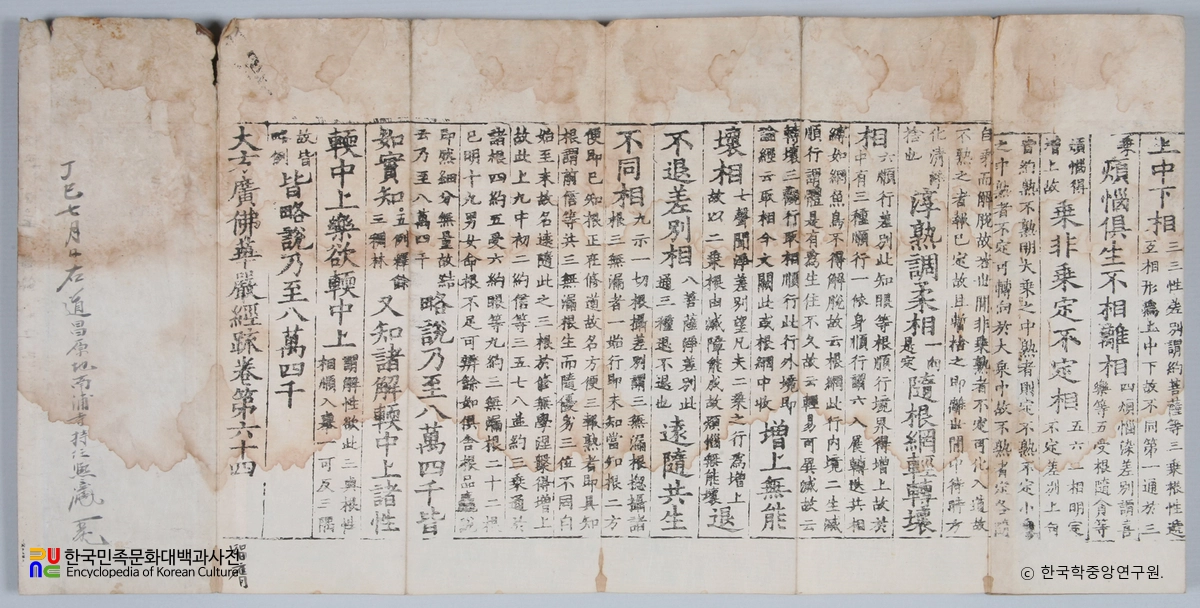 上中下相 三三性差別謂約菩薩等三乘根性遠
互相形為上中下故不同第一通於三
乘 煩惱俱生不相離相 四煩惱染差別謂喜
樂等五受根隨貪等
煩惱得
增上故 乘非乘定不定相 五六一相明定
不定差別上句
約熟不熟明大乘之中熟者則定不熟不定小乘
之中熟者不定可轉向於大乘中故不熟者定各
自乘而解脫故若也 開非乘熟者不定可化入道故
不熟之者報已定故且置捨之即離出間中待時方
化濟
捨也 淳熟調柔相 是定 隨根網輕轉壞
相 六順行差別此知眼等根順行境界得增上故於
中有三種順行一依身順行謂六入展轉迭共相
縛如網魚鳥不得解脫故云根網此行內境二生滅
順行謂體是有為生住不久故云輕易可異滅故云
轉壞三觀行取相順行此行外境即
論經云取相今文闕此或根網中收 增上無能
壞相 七聲聞淨差別望凡夫二乘之行為增上
故以二乘根由滅障能成故煩惱無能壞 退
不退差別相 八菩薩淨差別此
通三種退不退也 遠隨共生
不同相 九示一切根攝差別謂三無漏根揔攝諸
根三無漏者一始行即未知當知根二方
便即已知根正在修道故名方便三報熟者即具知
根謂前信等共三無漏根生而隨優劣三位不同自
始至末故名遠隨此之三根於修無學得增上
故此上九中初二約信等三五七八並約三乘通於
諸根四約五受六約眼等九約三無漏根二十二根
已明十九男女命根不足可辨餘如俱舍根品
即然細分無量故結
云乃至八萬四千 略說乃至八萬四千皆
如實知 五例釋餘
三稠林 又知諸解軟中上諸性
軟中上樂欲軟中上 謂解性欲此三與根性
相順入舉一可反三隅
故皆
略例 皆略說乃至八萬四千
大方廣佛華嚴經疏卷第六十四
丁巳七月 日 右道昌原地
한국민족문화대백과사전
Encyclopedia of Korean Culture
ⓒ 한국학중앙연구원.